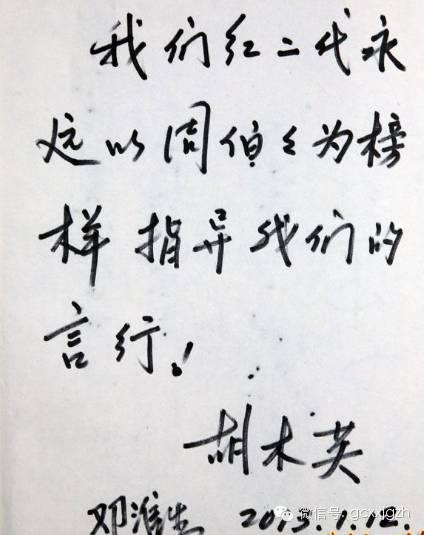 我们红二代永
远以周伯々为榜
样指导我们的
言行！
胡木英
邓淮生 2013.1.12.
微信号: gcxxjgzh